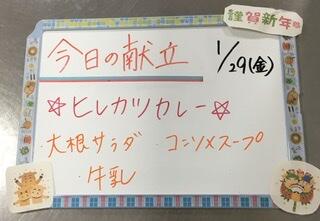 謹賀新年
今日の献立 1/29(金)
☆ヒレカツカレー☆
・大根サラダ ・コンソメスープ
・牛乳